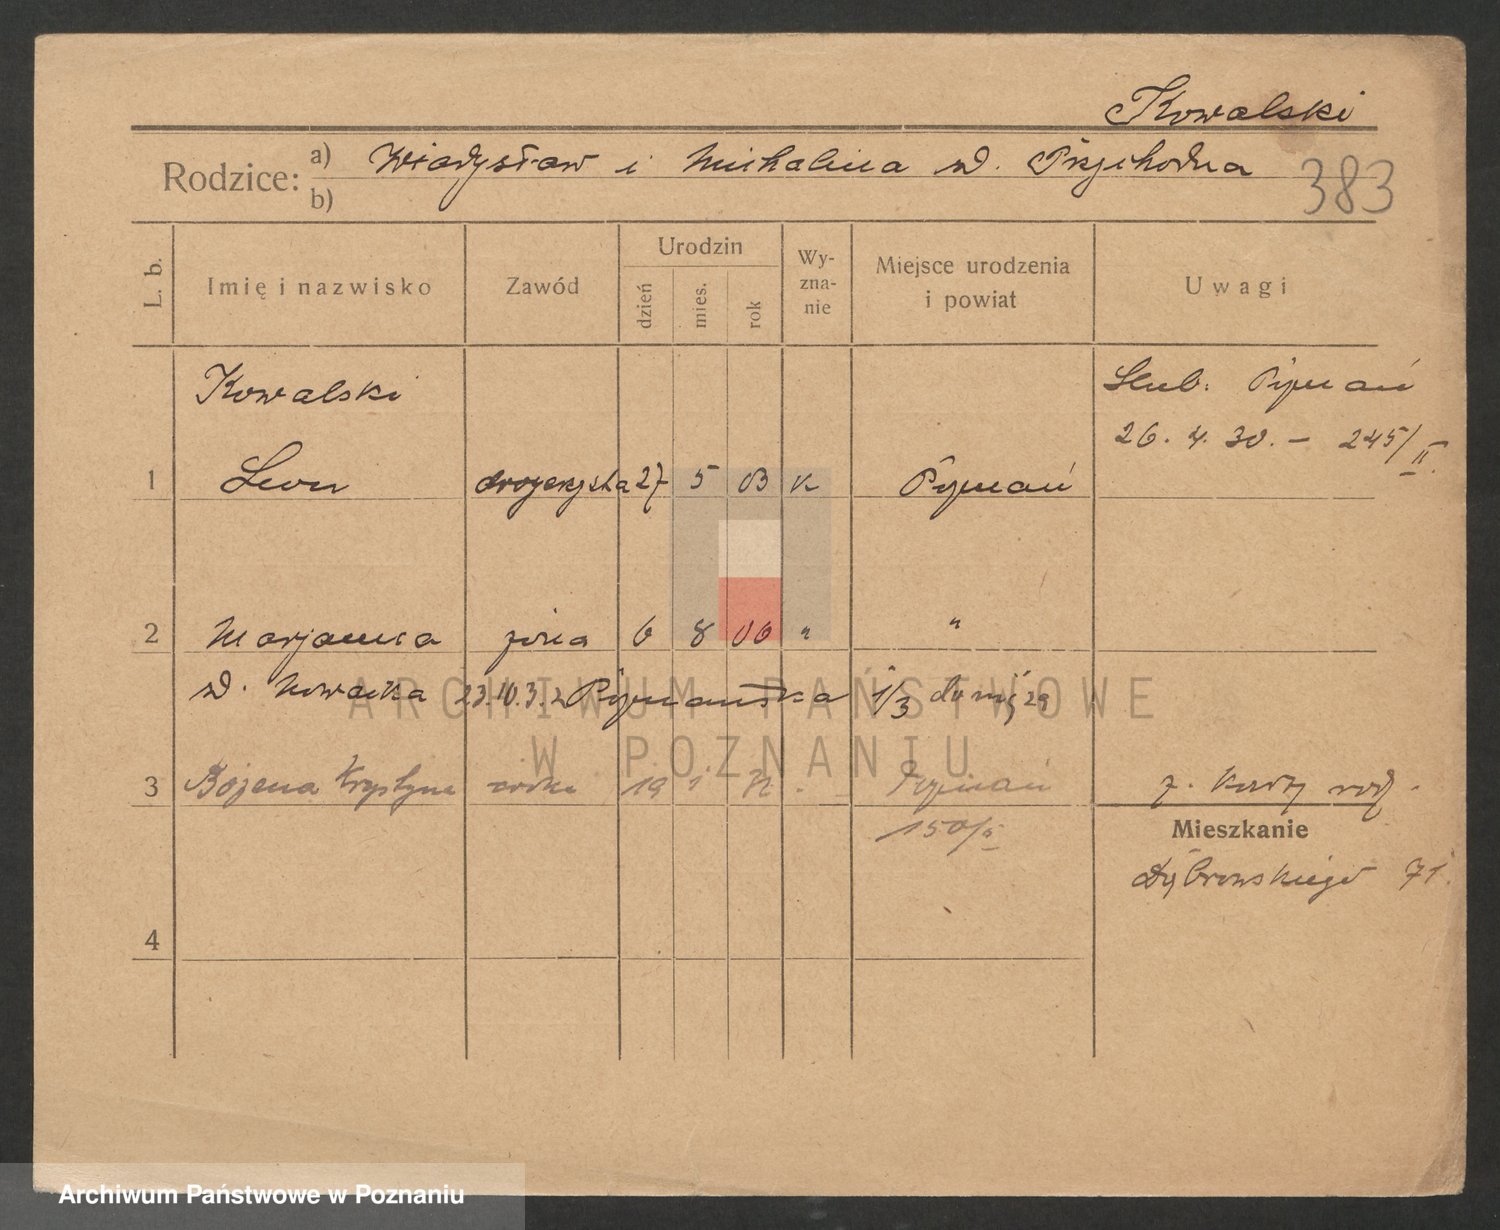 Kowalski
Rodzice: a) Władysław i Michalina ur. Przychodna
b)
383
L. b.
Imię i nazwisko
Zawód
Urodzin
dzień
mies.
rok
Wy-
zna-
nie
Miejsce urodzenia
i powiat
Uwagi
Kowalski
Ślub: Poznań
26. 4. 30. – 245/II.
1 Leon drogerzysta 27 5 03 k Poznań
2 Marjanna żona 6 8 06 " "
ur. Nowacka 23.10.32 Poznańska 1/3 do męża
ARCHIWUM PAŃSTWOWE
W POZNANIU
3 Bożena Krystyna córka 19 1 Poznań
z. karty rodz.
150/II
Mieszkanie
Dąbrowskiego 71.
4
Archiwum Państwowe w Poznaniu